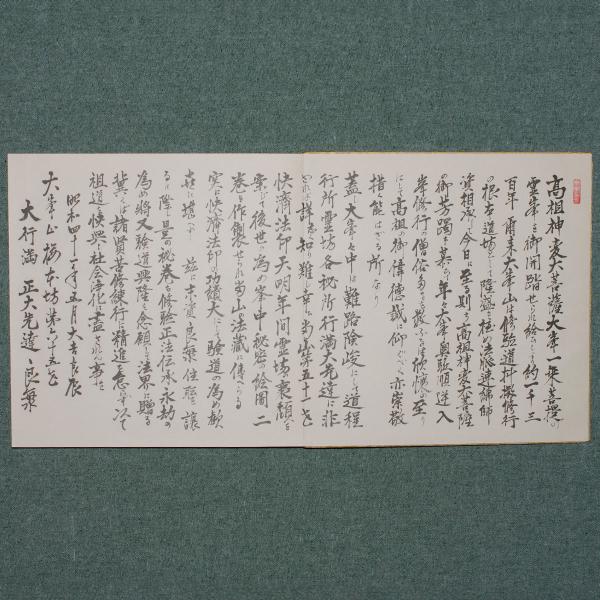 高祖神変大菩薩大峯一乗菩提の
霊峯を御開踏せられ給ひてより約一千三
百年爾来大峯山は修験道抖擻修行
の根本道場として隆盛を極め法脈連綿師
資相承して今日に至る則ち高祖神変大菩薩
の御芳躅を慕ひて年々大峯奥駈順逆入
峯修行の僧俗
にして高祖の御偉徳誠に仰ぐべく亦崇敬
措く能はざる所なり
蓋し大峯峯中は難路険峻にして道程
行所霊場各秘所行満大先達に非
されば詳に知り難し幸に当山第五十一世
快済法印天明年間霊場
案じ後世の為め峯中秘密の絵図二
巻を作製せられ当山法蔵に伝へらる
実に快済法印の功績大にして験道の為め歓
喜に堪へず 茲に 資良無住職を譲
るに際し是の秘巻を修験正法伝承永劫の
為め将又験道興隆を念願して法界に贈る
冀くば諸賢苦修練行に精進を怠らず以て
祖道快興と社会浄化に尽されん事を
昭和四十一年五月大吉良辰
大峯山桜本坊第六十五世
大行満 正大先達 良無